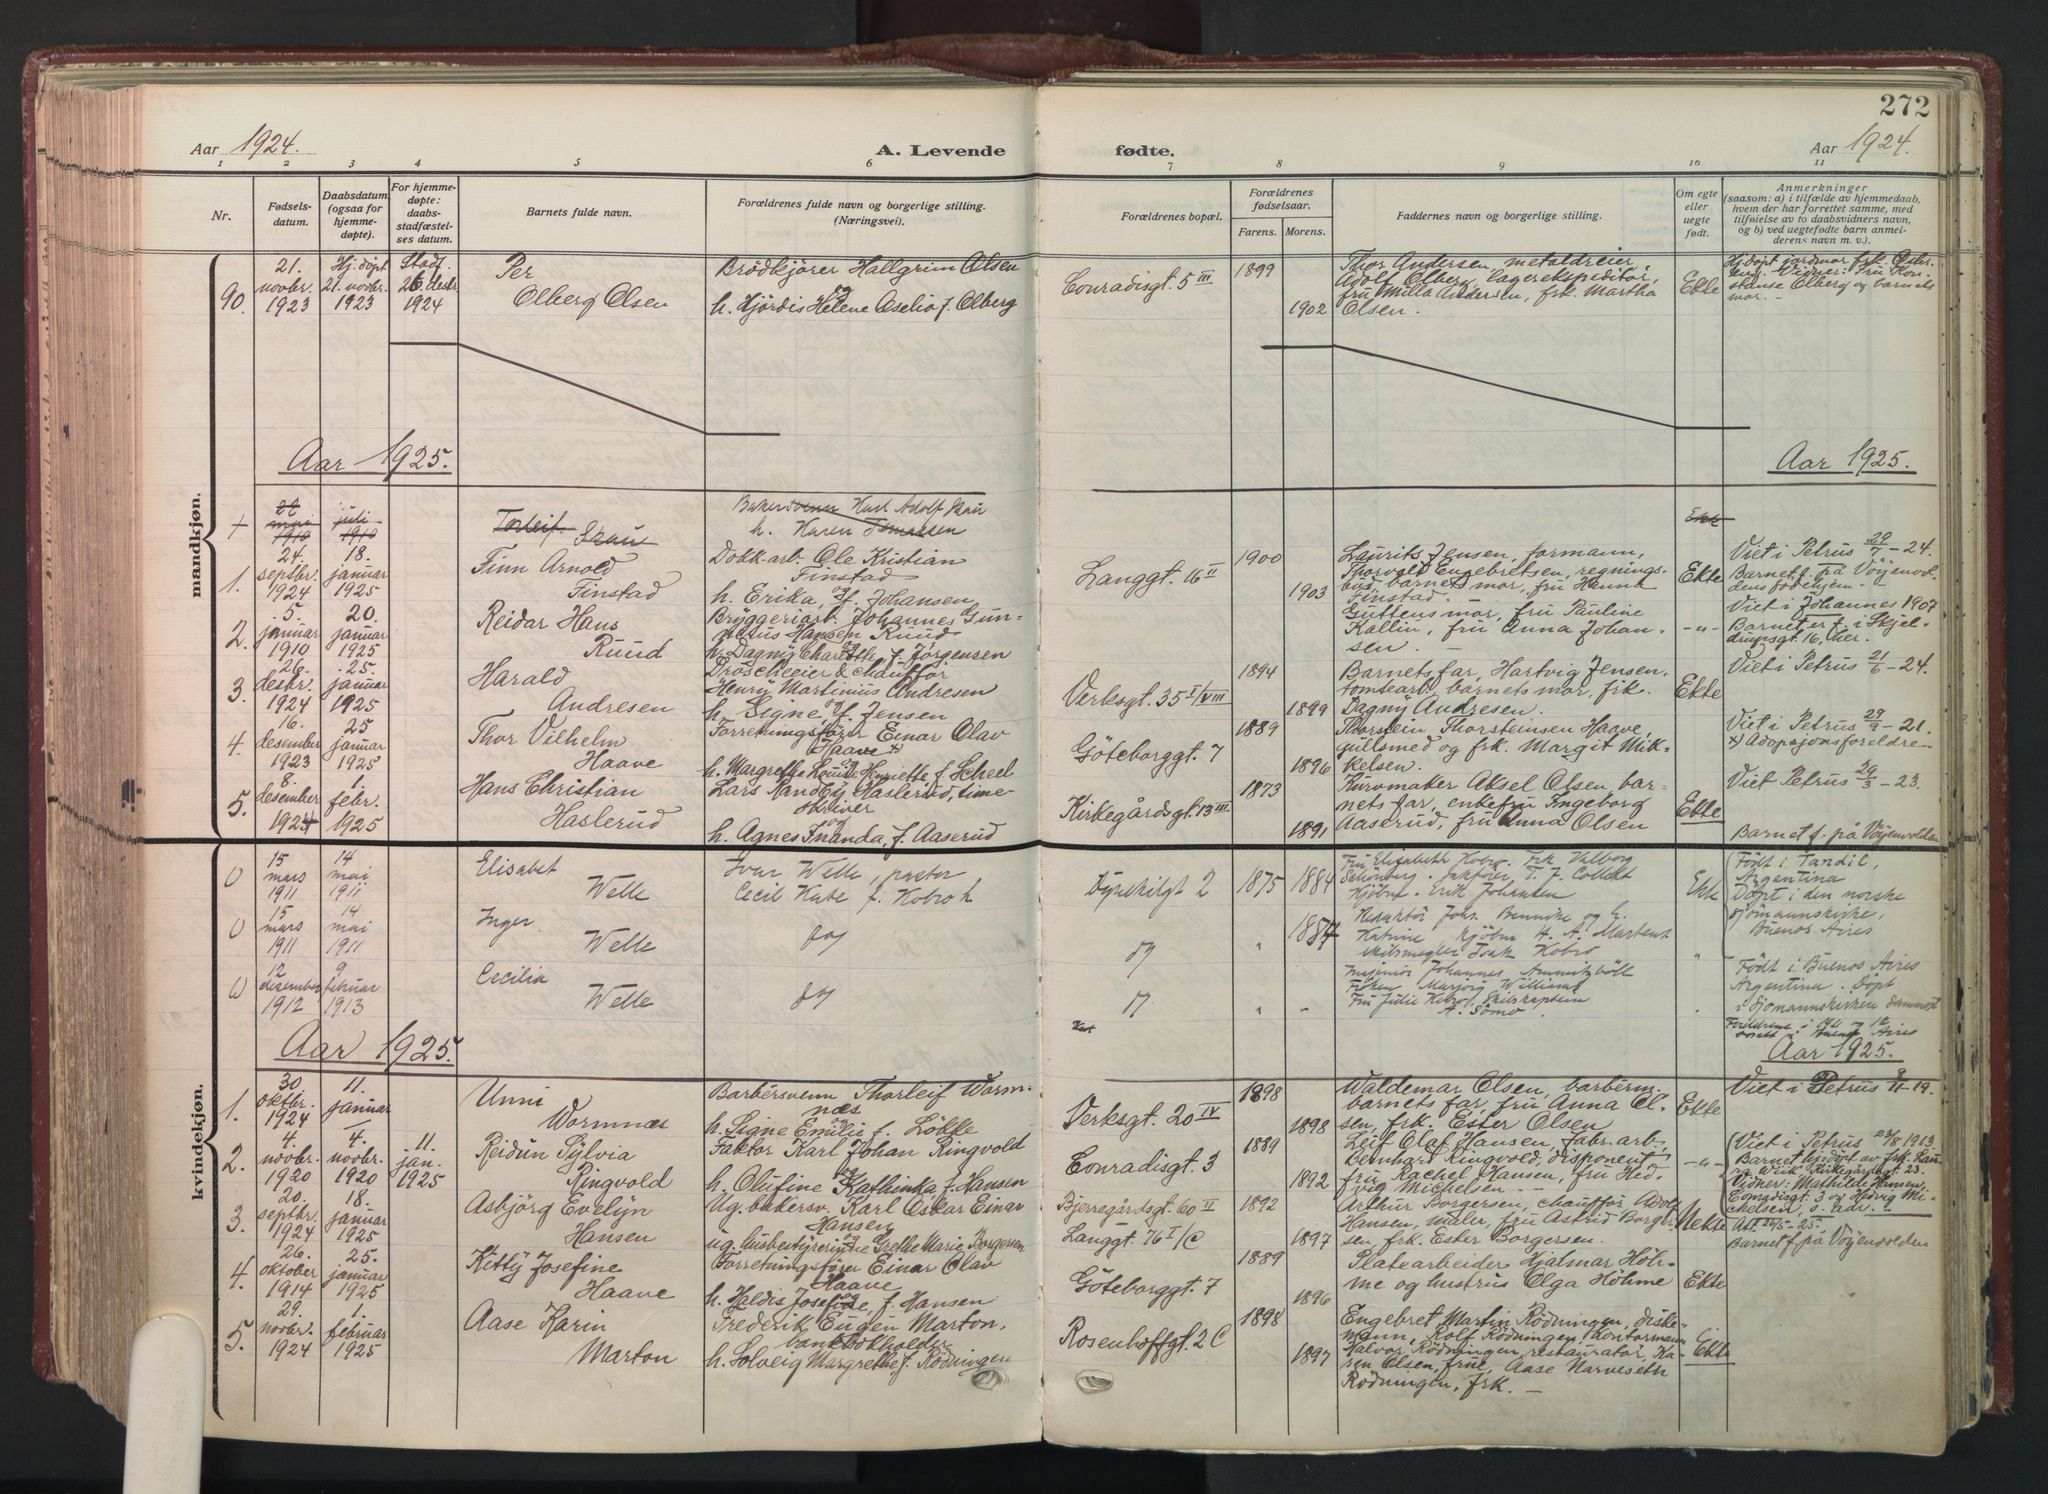 272
Aar 1924.
A. Levende
fødte.
Aar 1924.
1 2 3 4 5 6 7 8 9 10 11
Nr.
Fødsels-
datum.
Daabsdatum
(ogsaa for
hjemme-
døpte).
For hjemme-
døpte:
daabs-
stadfæstel-
ses datum.
Barnets fulde navn.
Forældrenes fulde navn og borgerlige stilling.
(Næringsvei).
Forældrenes bopæl.
Forældrenes
fødselsaar.
Farens. Morens.
Faddernes navn og borgerlige stilling.
Om egte
eller
uegte
født.
Anmerkninger
(saasom: a) i tilfælde av hjemmedaab,
hvem der har forrettet samme, med
tilføielse av to daabsvidners navn,
og b) ved uegtefødte barn anmel-
derens navn m. v.).
mandkjøn.
90.
21.
novbr.
1923
Hj. døpt
21. novbr.
1923
Stadf.
26. desbr.
1924
Per
Olberg Olsen
Brödkjörer Hallgrim Olsen
og
h. Hjördis Helene Aselia f. Olberg
Conradisgt. 5 III
1899
1902
Thor Andersen, metaldreier
Adolf Olberg, lagerekspeditör,
fru Milla Andersen, frk. Martha
Olsen.
Ekte
Hj. döpt jordmor frk.
Vidner: Fru Kon-
stanse Olberg og barnets
mor. —
Aar 1925.
Aar 1925.
+
mai
1910
juli
1910
Torleif
Skau
Bakersvenn Karl Adolf Skau
h. Karen Tomassen
Ekte
1.
24.
septbr.
1924
18.
januar
1925
Finn Arnold
Finstad
Dokk-arb. Ole Kristian
Finstad
og
h. Erika, f. Johansen
Langgt. 16 II
1900
1903
Laurits Jensen, formann,
Thorvald Engebretsen, regnings-
bud, barnets mor, fru Hanna
Finstad.
Ekte
Viet i Petrus 29/7 - 24.
Barnet f. på Vöyenvol-
dens födehjem. —
2.
5.
januar
1910
20.
januar
1925
Reidar Hans
Ruud
Bryggeriarb. Johannes Gun-
nerius Hansen Ruud
og
h. Dagny Charlotte f. Jörgensen
Guttens mor, fru Pauline
Kallin, fru Anna Johan-
sen. —
-"-
Viet i Johannes 1907
Barnet er f. i Skjel-
drupsgt. 16, her.
3.
26.
desbr.
1924
25.
januar
1925
Harald
Andresen
Droscheeier & chaufför
Henry Martinius Andresen
og
h. Signe, f. Jensen
Verksgt. 35 I/VIII
1894
1899
Barnets far, Hartvig Jensen,
tomtearb., barnets mor, frk.
Dagny Andresen.
Ekte
Viet i Petrus 21/6 - 24.
4.
16.
desember
1923
25
januar
1925
Thor Vilhelm
Haave
Forretningsförer Einar Olav
Haave x)
og
h. Margrethe Louise Henriette f. Scheel
Göteborggt. 7
1889
1896
Thorstein Thorsteinsen Haave,
gullsmed og frk. Margit Mik-
kelsen.
Viet i Petrus 29/9 - 21.
x) Adopsjonsforeldre.
5.
8.
desember
1924
1.
febr.
1925
Hans Christian
Haslerud
Lars Nandby Haslerud, time-
skriver
og
h. Agnes Inanda, f. Aaserud
Kirkegårdsgt. 13 III
1873
1891
Kurvmaker Aksel Olsen, bar-
nets far, enkefru Ingeborg
Aaserud, fru Anna Olsen
Ekte
Viet Petrus 29/3 - 23.
Barnet f. på Vöyenvolden
kvindekjøn.
0
15
mars
1911
14
mai
1911
Elisabet
Welle
Ivar Welle, pastor
Cecil Kate f. Kobro h
Dynekilgt 2
1875
1884
Fru Elisabeth Kobro. Frk Valborg
Schönberg. T. J. Collett
Kjöbm. Erik Johansen
Ekte
Födt i Tandil,
Argentina
Döpt i den norske
sjömannskirke,
Buenos Aires
0
15
mars
1911
14
mai
1911
Inger
Welle
"
1884
Redaktör Johs. Bennike og h.
Katrine Kjöbm H. A. Martens
skibsmegler Isak Kobro
"
0
12
desember
1912
9
februar
1913
Cecilia
Welle
"
"
Ingeniör Johannes Ammitzböll
Fröken Marjory Williams
Fru Julie Kobro, Skibskaptein
A. Sömo.
"
Födt i Buenos Aires
Argentina. Döpt
i Sjömannskirken dammest
Foreldrene
Buenos Aires
Aar 1925.
Aar 1925.
1.
30.
oktbr.
1924
11.
januar
Unni
Wormnæs
Barbersvenn Thorleif Worm-
næs
h. Signe Emilie f. Lökke
Verksgt. 20 IV
1898
1898
Waldemar Olsen, barberm.
barnets far, fru Anna Ol-
sen, frk. Ester Olsen
Ekte
Viet i Petrus 8/11 - 19.
2.
4.
novbr.
1920
4.
novbr.
1920
11.
jan.
1925
Reidun Sylvia
Ringvold
Faktor Karl Johan Ringvold
og
h. Olufine Kathinka f. Hansen
Conradisgt. 3
1889
1892
Leif Olaf Hansen, fabr. arb.,
Bernhart Ringvold, disponent
fru Rachel Hansen, fru Hed-
vig Michelsen. —
-"-
Viet i Petrus 24/8 1913.
Barnet hj. döpt av frk. Lau-
ra Wiik Kirkegårdsgt. 23.
Vidner: Mathilde Hansen,
Conradisgt. 3 og Hedvig Mi-
chelsen, s. adr.
3.
20.
septbr.
1924
18.
januar
1925
Asbjörg Evelyn
Hansen
Ug. bakersv. Karl Oskar Einar
Hansen
og
ug. husbestyrerinne Grethe Marie Borgersen
Bjerregårdsgt. 60 II
Langgt. 76 I/C
1892
1897
Arthur Borgersen, chauffør, Adolf
Hansen, maler, fru Astrid Borger-
sen, frk. Ester Borgersen.
Uekte
25/5 - 25.
Barnet f. på Vöyenvolden
4.
26.
oktober
1914
25.
januar
1925
Kitty Josefine
Haave
Forretningsförer Einar Olav
Haave
og
h. Haldis Josefine, f. Hansen
Göteborggt. 7
1889
1896
Platearbeider Hjalmar Höh-
me og hustrus Olga Höhme
Ekte
5.
29.
novbr.
1924
1.
februar
1925
Aase Karin
Marton
Frederik Eugen Marton,
bankbokholder
h. Solveig Margrethe, f. Rödningen
Rosenhoffgt. 2 C
1898
1897
Engebret Martin Rödningen, disk-
mann, Rolf Rödningen, kontormann
Halvor Rödningen, restauratör, Ka-
ren Olsen, frue, Aase Narveseth
Rödningen, frk. —
Ekte